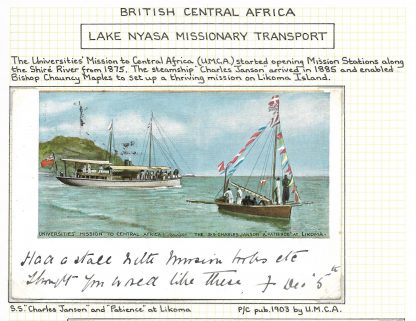 BRITISH CENTRAL AFRICA
LAKE NYASA MISSIONARY TRANSPORT
The Universities' Mission to Central Africa (U.M.C.A.) started opening Mission Stations along
the Shiré River from 1875. The steamship "Charles Janson" arrived in 1885 and enabled
Bishop Chauncy Maples to set up a thriving mission on Likoma Island.
UNIVERSITIES' MISSION TO CENTRAL AFRICA THE S.S. CHARLES JANSON & PATIENCE AT LIKOMA.
Had a stall with Mission books etc
Thought you would like these. Dec 5th
S.S. "Charles Janson" and "Patience" at Likoma
P/C pub. 1903 by U.M.C.A.